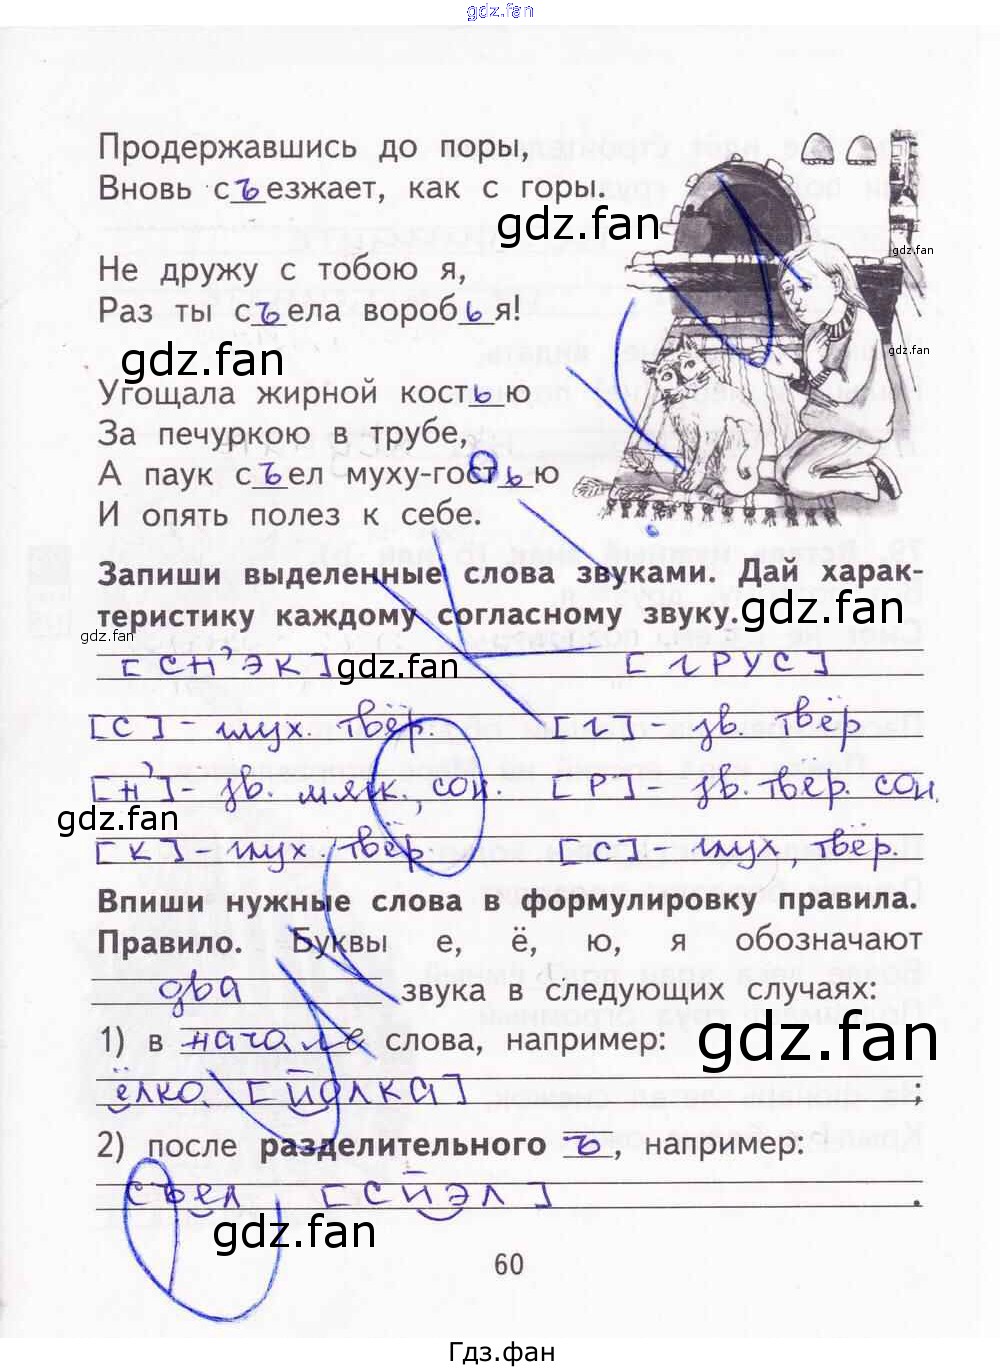 gdz.fan
Продержавшись до поры,
Вновь съезжает, как с горы.
gdz.fan
gdz.fan
Не дружу с тобою я,
Раз ты съела воробья!
gdz.fan
gdz.fan
Угощала жирной костью
За печуркою в трубе,
А паук съел муху-гостью
И опять полез к себе.
Запиши выделенные слова звуками. Дай харак-
теристику каждому согласному звуку.
gdz.fan
gdz.fan
gdz.fan
[СН'ЭК] [ГРУС]
[С] - глух. твёр. [Г] - зв. твёр
[Н'] - зв. мягк., сон. [Р] - зв. твёр. сон.
gdz.fan
[К] - глух, твёр [С] - глух, твёр.
Впиши нужные слова в формулировку правила.
Правило. Буквы е, ё, ю, я обозначают
два звука в следующих случаях:
1) в начале слова, например:
gdz.fan
ёлка [ЙОЛКА] ;
2) после разделительного ъ, например:
съел [СЙЭЛ] .
gdz.fan
60
Гдз.фан